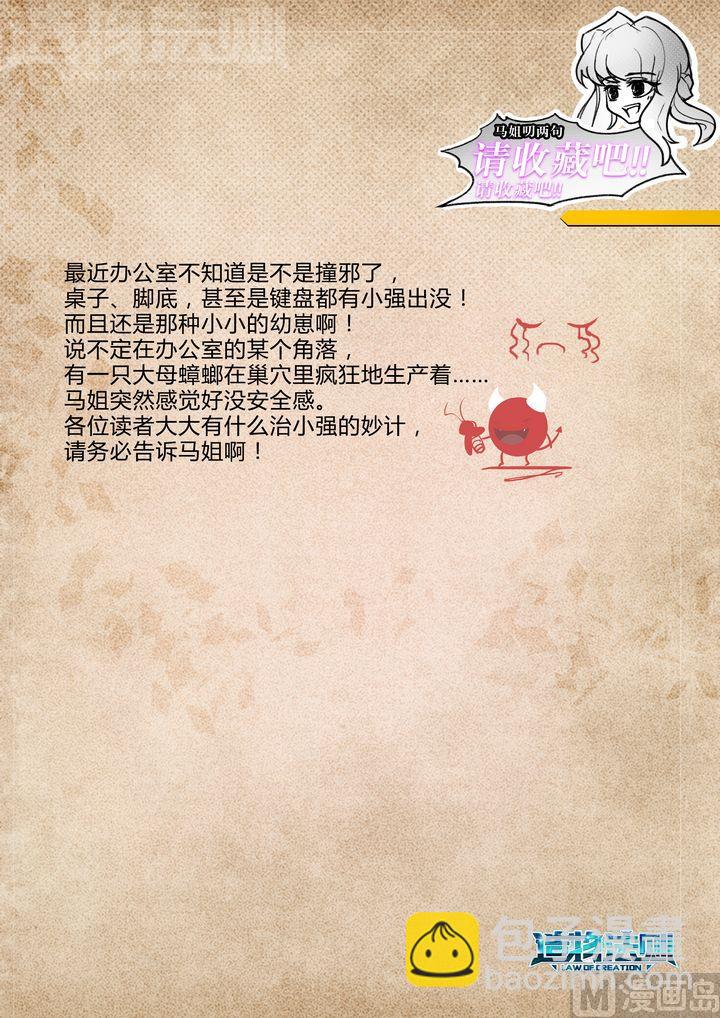 造物法则
马姐叨两句
请收藏吧!!
请收藏吧!!
最近办公室不知道是不是撞邪了，
桌子、脚底，甚至是键盘都有小强出没！
而且还是那种小小的幼崽啊！
说不定在办公室的某个角落，
有一只大母蟑螂在巢穴里疯狂地生产着……
马姐突然感觉好没安全感。
各位读者大大有什么治小强的妙计，
请务必告诉马姐啊！
包子漫畫
造物法则
LAW OF CREATION
baozimh.com
M 漫画岛